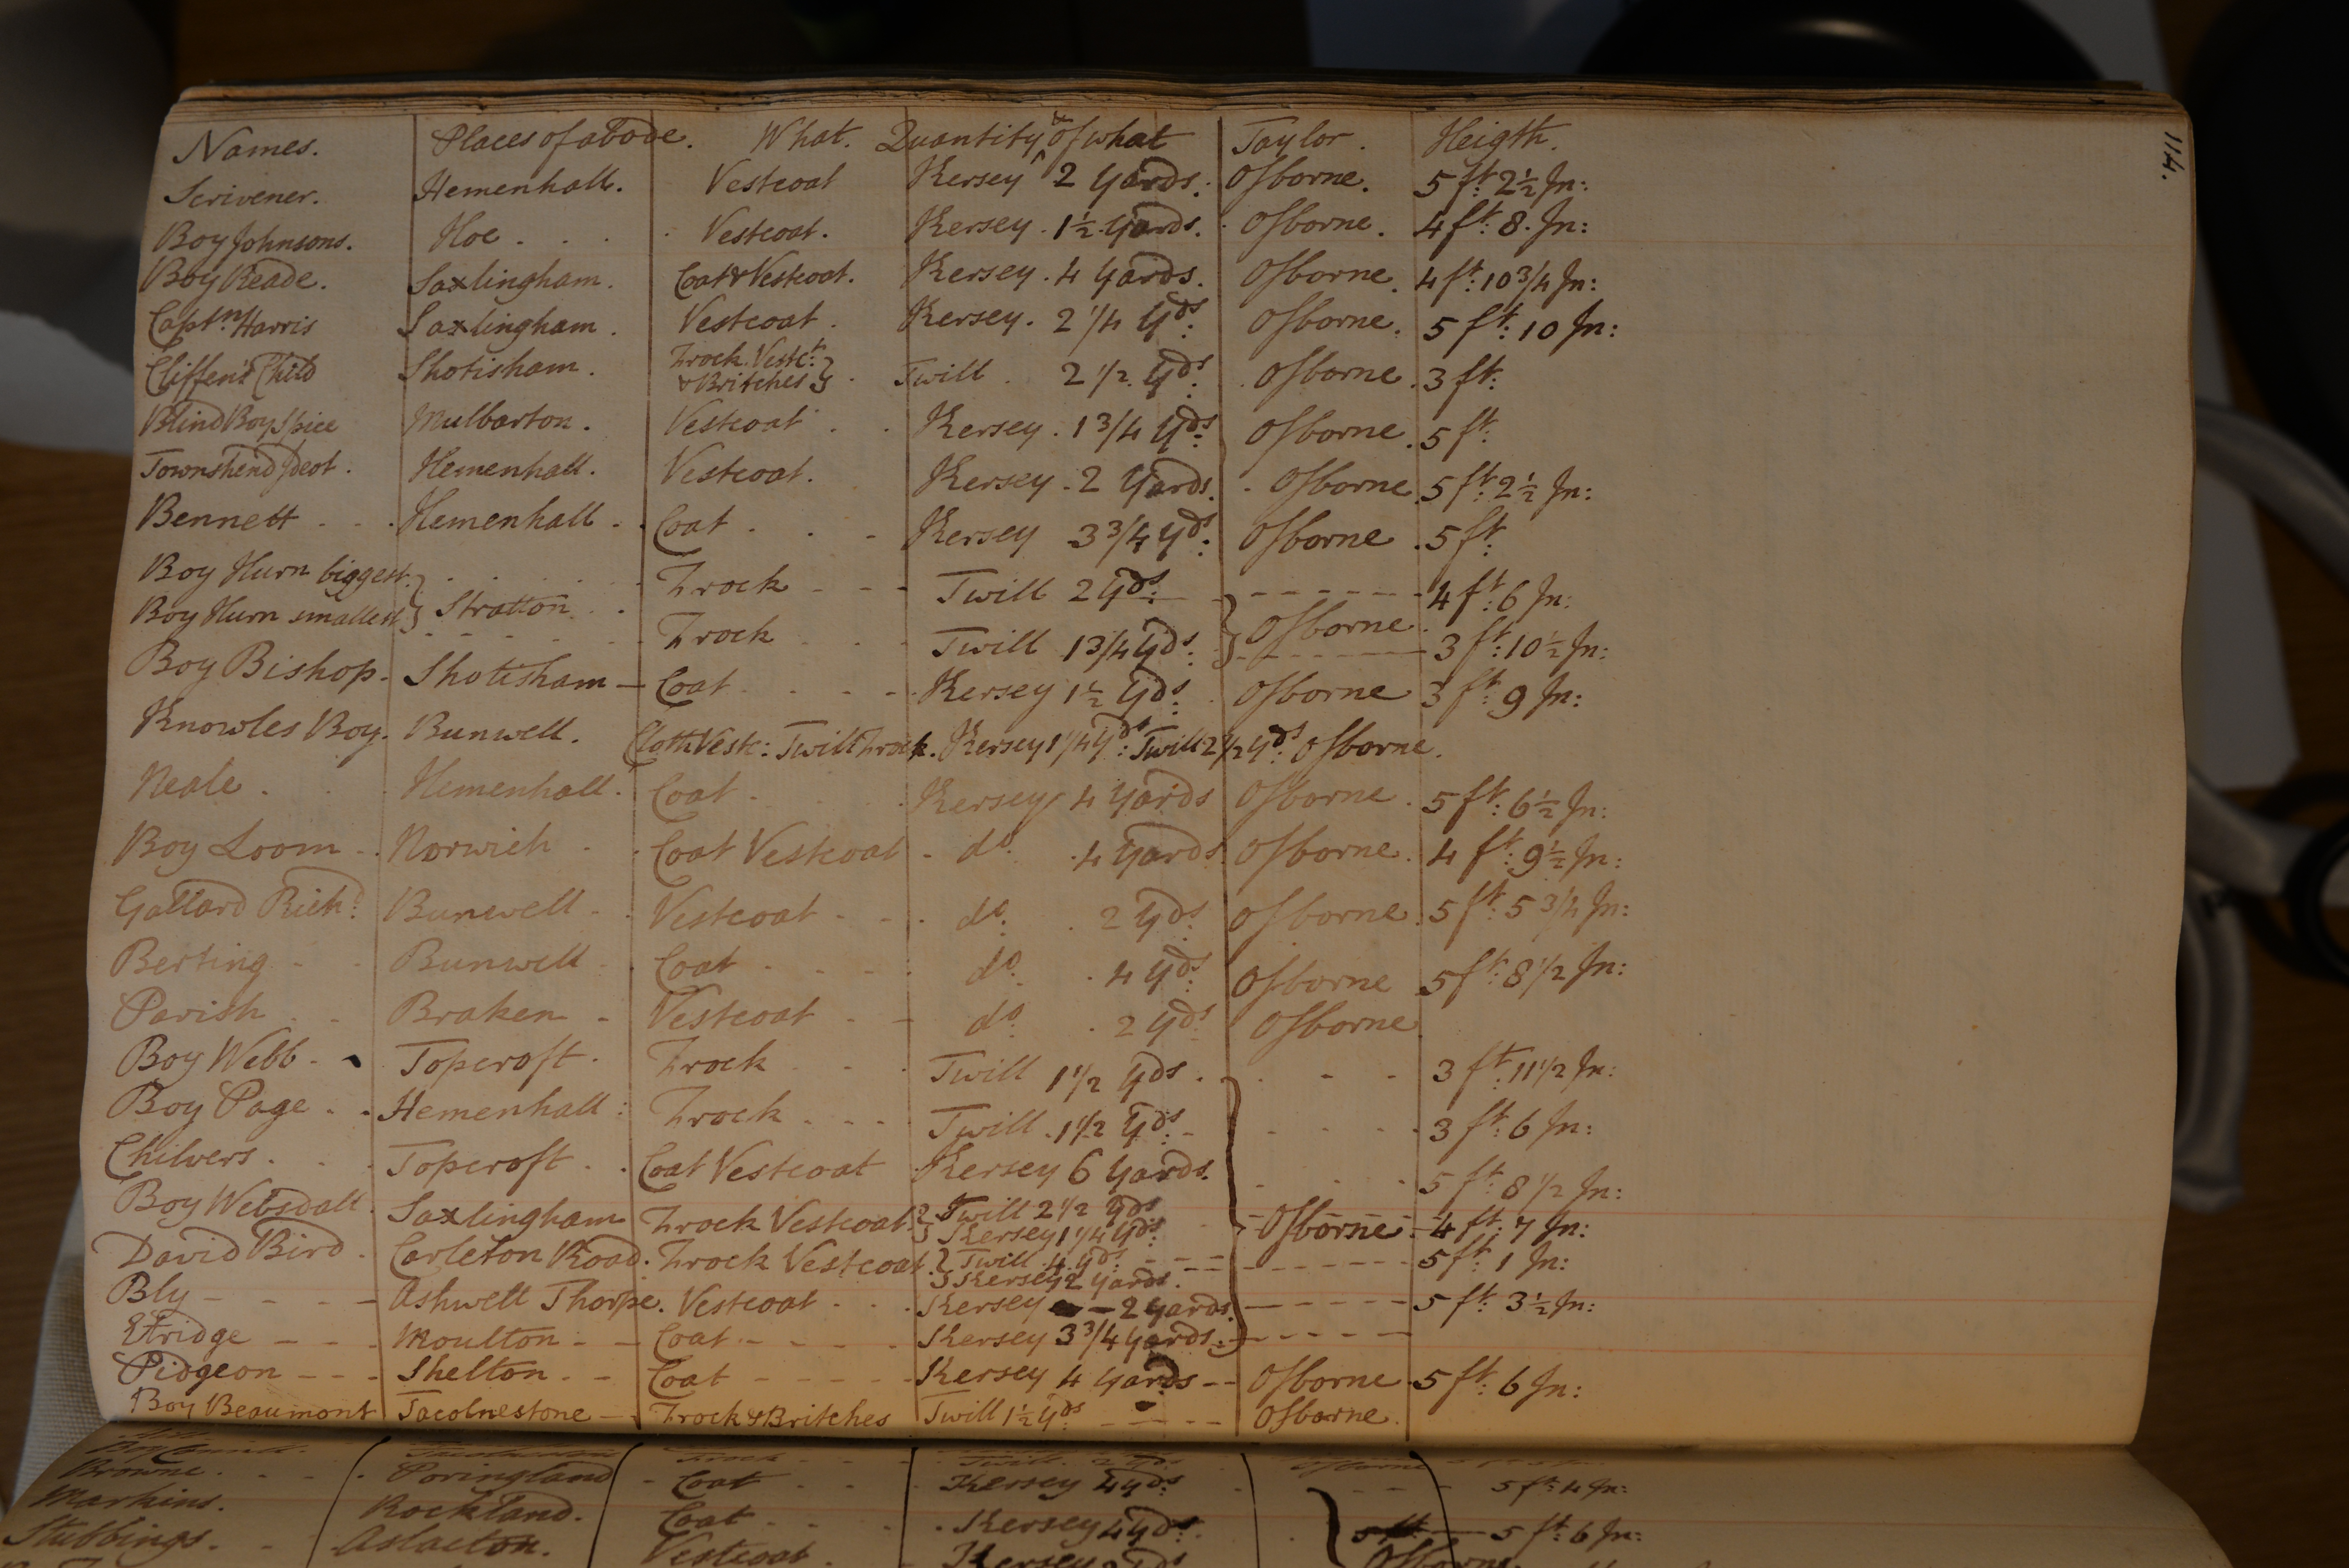 114.
Names. Places of abode. What. Quantity & of what Taylor. Heigth.
Scrivener. Hemenhall. Vestcoat Kersey 2 Yards. Osborne. 5 ft: 2½ In:
Boy Johnsons. Hoe . . . . Vestcoat. Kersey. 1½ Yards. Osborne. 4 ft: 8. In:
Boy Reade. Saxlingham. Coat & Vestcoat. Kersey. 4 Yards. Osborne. 4 ft: 10 3/4 In:
Captn: Harris Saxlingham. Vestcoat. Kersey. 2 1/4 Yds: Osborne. 5 ft: 10 In:
Cliffen's Child Shotisham. Frock Vestct: & Britches } . Twill . 2 1/2 Yds: . Osborne. 3 ft:
Blind Boy Spice Mulbarton. Vestcoat . . Kersey. 1 3/4 Yds: Osborne. 5 ft:
Townshend Ideot. Hemenhall. Vestcoat. Kersey. 2 Yards. . Osborne. 5 ft: 2½ In:
Bennett . . . Hemenhall . . Coat . . - Kersey 3 3/4 Yds: Osborne . 5 ft:
Boy Hurn biggest. } . . . . . Frock - - - Twill 2 Yds: - - - - - - 4 ft: 6 In:
Boy Hurn smallest } Stratton . . Frock . . . Twill 1 3/4 Yds: } Osborne. 3 ft: 10½ In:
Boy Bishop. Shotisham - Coat . . - - Kersey 1½ Yds: Osborne 3 ft: 9 In:
Knowles Boy. Bunwell. Cloth Vest: Twill Frock. Kersey 1 1/4 Yds: Twill 2 1/2 Yds: Osborne.
Neale . . . Hemenhall. Coat . . . . Kersey 4 Yards Osborne. 5 ft: 6½ In:
Boy Loom - . Norwich . . Coat Vestcoat - do. . 4 Yards Osborne. 4 ft: 9½ In:
Gallard Richd: Bunwell - . Vestcoat - - . do: . 2 Yds: Osborne. 5 ft: 5 3/4 In:
Berting - - Bunwell . Coat . - - . do: . 4 Yds: Osborne 5 ft: 8 1/2 In:
Parish . - Braken - Vestcoat - - do: . 2 Yds: Osborne
Boy Webb - Topcroft. Frock . - . Twill 1 1/2 Yds. . - - 3 ft: 11 1/2 In:
Boy Page . . Hemenhall: Frock . - - Twill . 1 1/2 Yds: - . - . . 3 ft: 6 In:
Chilvers . . . Topcroft . . Coat Vestcoat Kersey 6 Yards. - - - 5 ft: 8 1/2 In:
Boy Websdall. Saxlingham Frock Vestcoat. } Twill 2 1/2 Yds Kersey 1 1/4 Yds: } Osborne. 4 ft: 7 In:
David Bird. Carleton Road. Frock Vestcoat. } Twill 4 Yds: Kersey 2 Yards. - - - - 5 ft: 1 In:
Bly - - - - Ashwell Thorpe. Vestcoat . . . Kersey - 2 Yards. - - - - - 5 ft: 3½ In:
Etridge - - . Moulton - - Coat - - - . Kersey 3 3/4 Yards. - - - - -
Pidgeon - - - Shelton . - Coat - - - - - Kersey 4 Yards - - Osborne. 5 ft: 6 In:
Boy Beaumont Tacolnestone - Frock & Britches Twill 1½ Yds: - - - - Osborne.
Browne . - - . Poringland - Coat . . . Kersey 4 Yds: . - - - 5 ft: 4 In:
Markins. Rockland. Coat . . . . Kersey 4 Yds: . } 5 ft: 6 In:
Stubbings . - Aslacton. Vestcoat . Kersey Osborne.